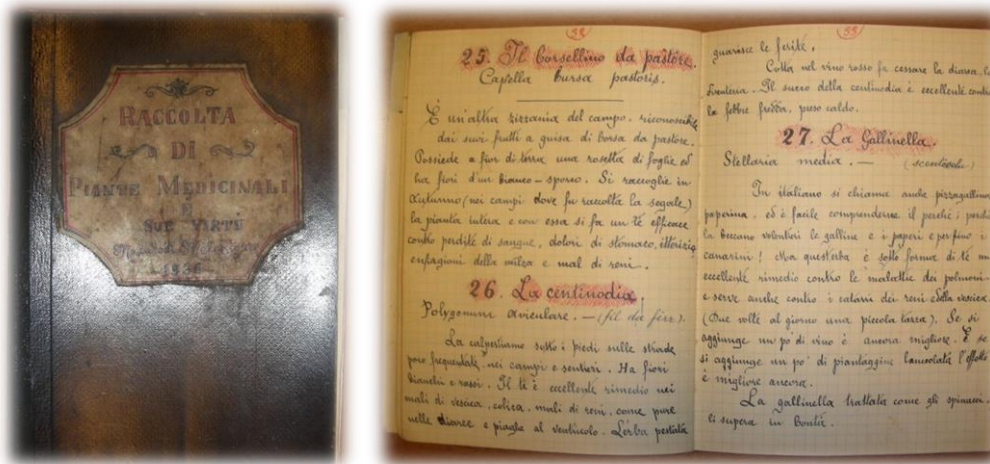 RACCOLTA
DI
PIANTE MEDICINALI
E
SUE VIRTÙ
1936
25. Il borsellino da pastore.
Capsella bursa pastoris.
È un'altra zizzania del campo, riconoscibile
dai suoi frutti a guisa di borsa da pastore.
Possiede a fior di terra una rosetta di foglie ed
ha fiori d'un bianco-sporco. Si raccoglie in
autunno (nei campi dove fu raccolta la segale)
la pianta intera e con essa si fa un tè efficace
contro perdite di sangue, dolori di stomaco, itterizia
enfiagioni della milza e mal di reni.
26. La centinodia.
Polygonum aviculare. — (fil da ferr).
La calpestiamo sotto i piedi sulle strade
poco frequentate, nei campi e sentieri. Ha fiori
bianchi e rossi. Il tè è eccellente rimedio nei
mali di vescica, colica, mali di reni, come pure
nelle diarree e piaghe al ventricolo. L'erba pestata
guarisce le ferite.
Cotta nel vino rosso fa cessare la diarea, la
dissenteria. Il succo della centinodia è eccellente contro
la febbre fredda, preso caldo.
27. La Gallinella.
Stellaria media. —
In italiano si chiama anche pizzagallina
paperina, ed è facile comprenderne il perchè: perchè
la beccano volentieri le galline e i paperi e perfino i
canarini! Ma quest'erba è sotto forma di tè un
eccellente rimedio contro le malattie dei polmoni
e serve anche contro i catarri dei reni e della vescica
(Due volte al giorno una piccola tazza). Se si
aggiunge un po' di vino è ancora migliore. E se
si aggiunge un po' di piantaggine lanceolata l'effetto
è migliore ancora.
La gallinella trattata come gli spinacci,
li supera in bontà.